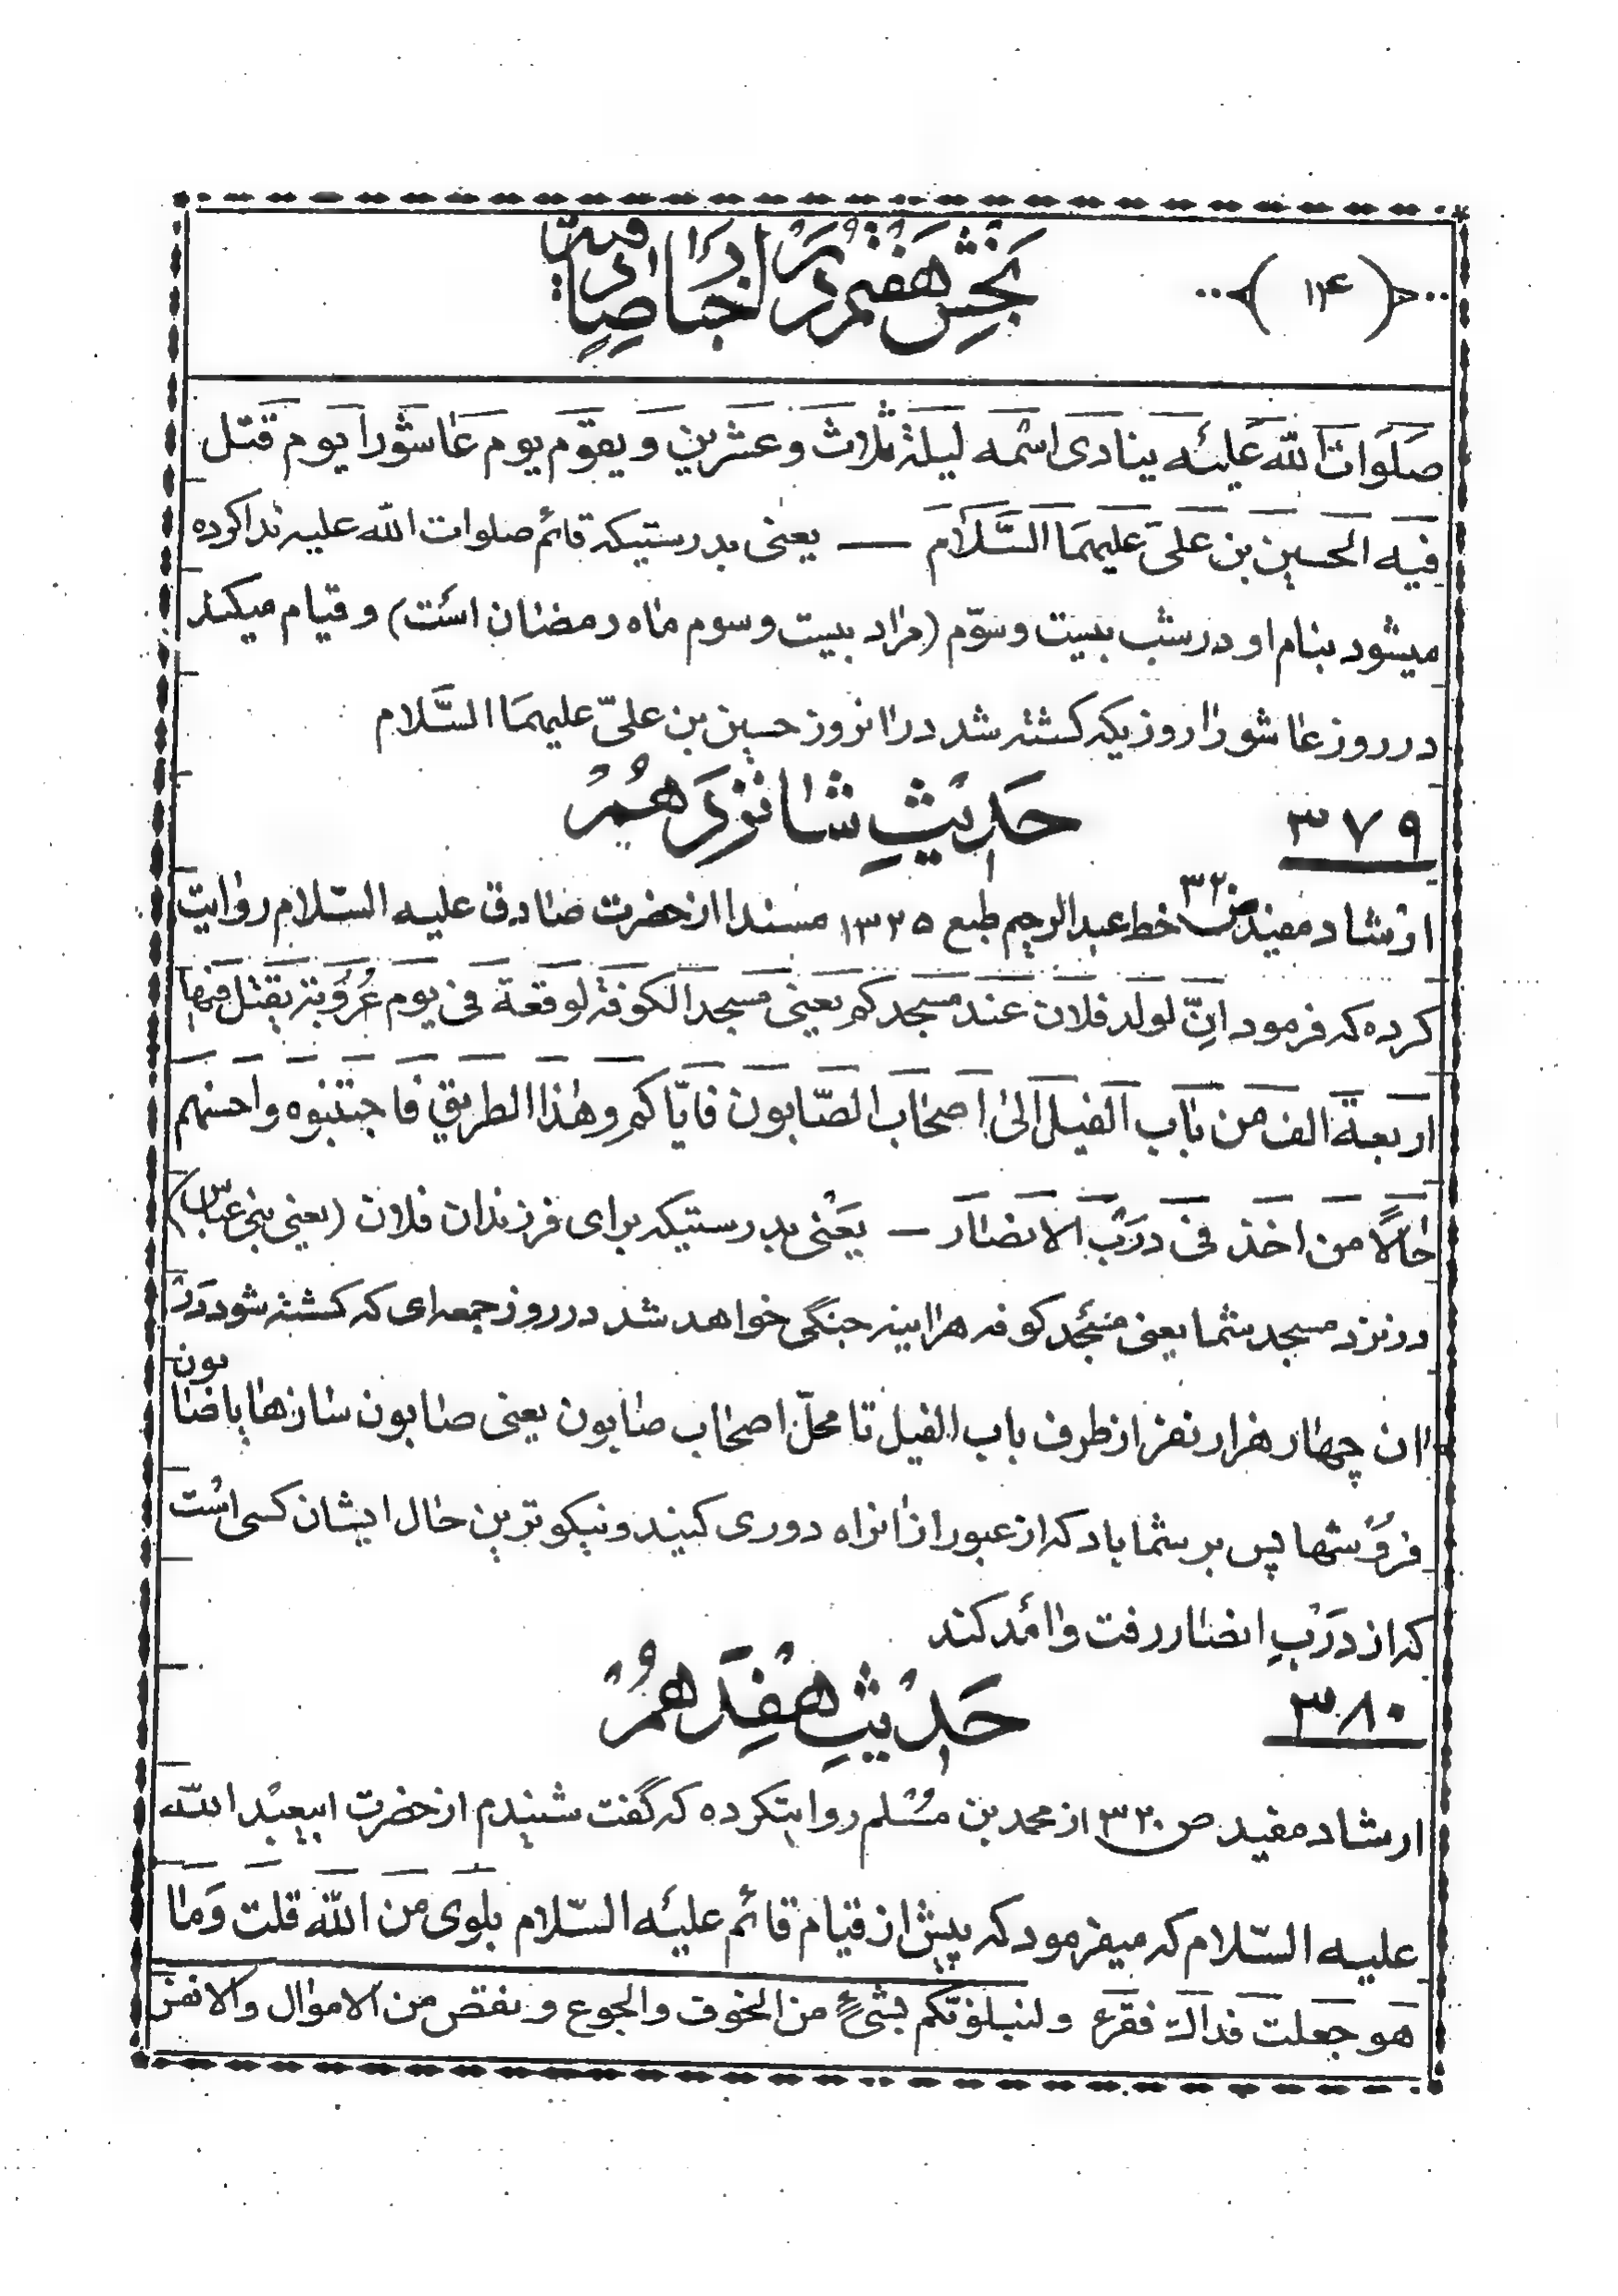 ﴿ ۱۴ ﴾
بخش هفتم در اخبار صادقیه
صلوات الله علیه ینادی اسمه لیلة ثلاث و عشرین و یقوم یوم عاشورا یوم قتل
فیه الحسین بن علی علیهما السلام — یعنی بدرستیکه قائم صلوات الله علیه ندا کرده
میشود بنام او در شب بیست و سوّم (مراد بیست و سوم ماه رمضان است) و قیام میکند
در روز عاشورا روزیکه کشته شد در انروز حسین بن علیّ علیهما السَّلام
۳۷۹
حدیث شانزدهم
ارشاد مفید ص ۳۲۰ خط عبدالرحیم طبع ۱۳۲۵ مسندا از حضرت صادق علیه السّلام روایت
کرده که فرمود انّ لولد فلان عند مسجدکم یعنی مسجد الکوفة لوقعة فی یوم عروبة یقتل فیها
اربعة الف من باب الفیل الی اصحاب الصّابون فایّاکم و هذا الطریق فاجتنبوه و احسنهم
حالًا من اخذ فی درب الانصار — یعنی بدرستیکه برای فرزندان فلان (یعنی بنی عباس)
در نزد مسجد شما یعنی مسجد کوفه هراینه جنگی خواهد شد در روز جمعه ای که کشته شود در
ان چهار هزار نفر از طرف باب الفیل تا محلّ اصحاب صابون یعنی صابون سازها یا صابون
فروشها پس بر شما باد که از عبور از انراه دوری کنید و نیکوترین حال ایشان کسی است
که از درب انصار رفت و امد کند
۳۸۰
حدیث هفدهم
ارشاد مفید ص ۳۲۰ از محمد بن مسلم روایتکرده که گفت شنیدم از حضرت ابیعبد الله
علیه السّلام که میفرمود که پیش از قیام قائم علیه السّلام بلوی من الله قلت و ما
هو جعلت فداک فقرء ولنبلونّکم بشیءٍ من الخوف والجوع و نقص من الاموال والانفس